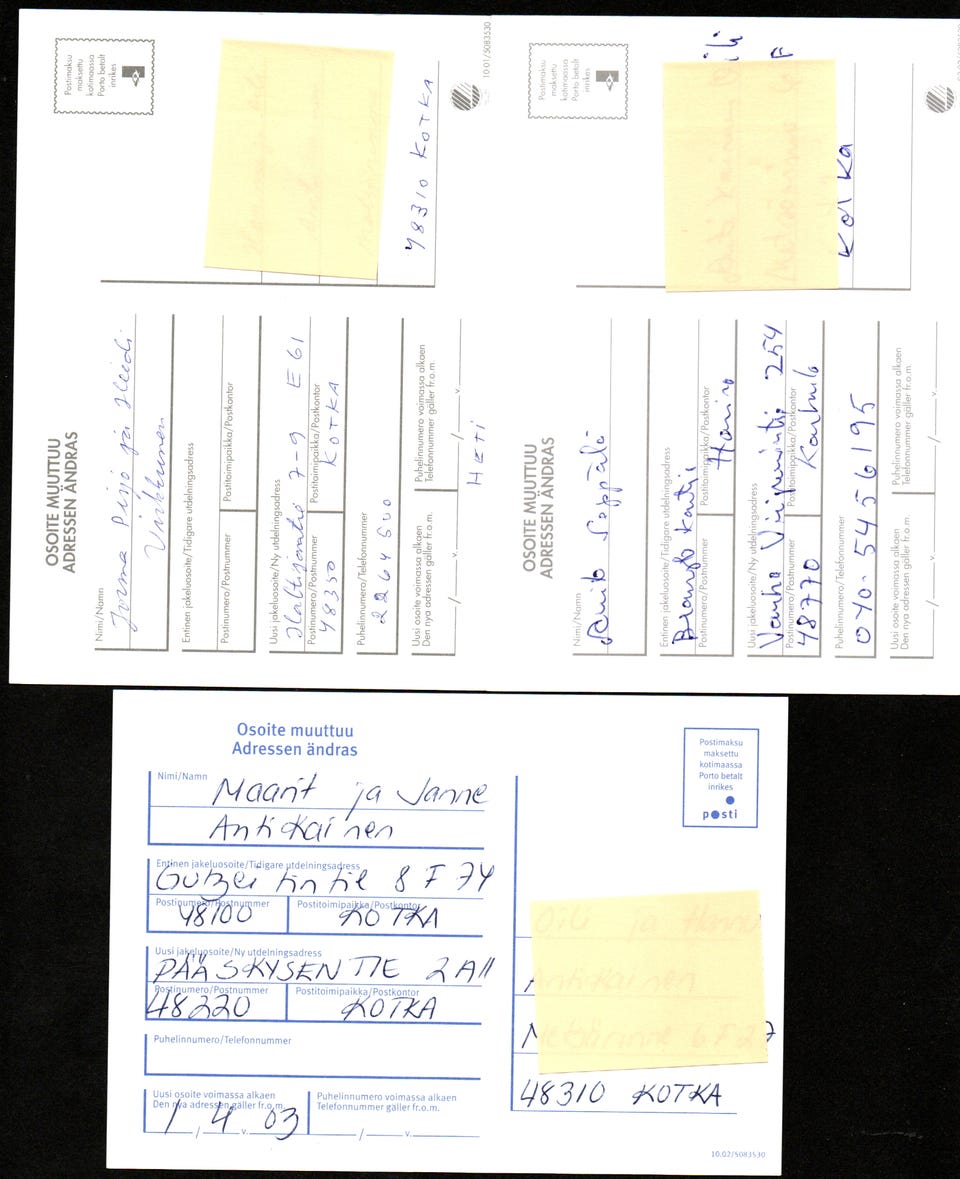 OSOITE MUUTTUU
ADRESSEN ÄNDRAS
Postimaksu
maksettu
kotimaassa
Porto betalt
inrikes
Nimi/Namn
Jorma Pirjo ja Heidi
Entinen jakeluosoite/Tidigare utdelningsadress
Postinumero/Postnummer Postitoimipaikka/Postkontor
Uusi jakeluosoite/Ny utdelningsadress
7-9 E 61
Postinumero/Postnummer Postitoimipaikka/Postkontor
48350 KOTKA
Puhelinnumero/Telefonnummer
2264500
Uusi osoite voimassa alkaen
Den nya adressen gäller fr.o.m.
Puhelinnumero voimassa alkaen
Telefonnummer gäller fr.o.m.
/ v. / v.
HETI
48310 KOTKA
10.01/5083530
OSOITE MUUTTUU
ADRESSEN ÄNDRAS
Postimaksu
maksettu
kotimaassa
Porto betalt
inrikes
Nimi/Namn
Seppälä
Entinen jakeluosoite/Tidigare utdelningsadress
Postinumero/Postnummer Postitoimipaikka/Postkontor
Uusi jakeluosoite/Ny utdelningsadress
Vanha 254
Postinumero/Postnummer Postitoimipaikka/Postkontor
48770 Karhula
Puhelinnumero/Telefonnummer
040-5456195
Uusi osoite voimassa alkaen
Den nya adressen gäller fr.o.m.
Puhelinnumero voimassa alkaen
Telefonnummer gäller fr.o.m.
/ v. / v.
Kotka
Osoite muuttuu
Adressen ändras
Postimaksu
maksettu
kotimaassa
Porto betalt
inrikes
posti
Nimi/Namn
Maarit ja Janne
Antikainen
Entinen jakeluosoite/Tidigare utdelningsadress
Gutzeitintie 8 F 74
Postinumero/Postnummer Postitoimipaikka/Postkontor
48100 KOTKA
Uusi jakeluosoite/Ny utdelningsadress
PÄÄSKYSENTIE 2 A 11
Postinumero/Postnummer Postitoimipaikka/Postkontor
48220 KOTKA
Puhelinnumero/Telefonnummer
Uusi osoite voimassa alkaen
Den nya adressen gäller fr.o.m.
Puhelinnumero voimassa alkaen
Telefonnummer gäller fr.o.m.
1 / 4 v. 03 / v.
48310 KOTKA
10.02/5083530